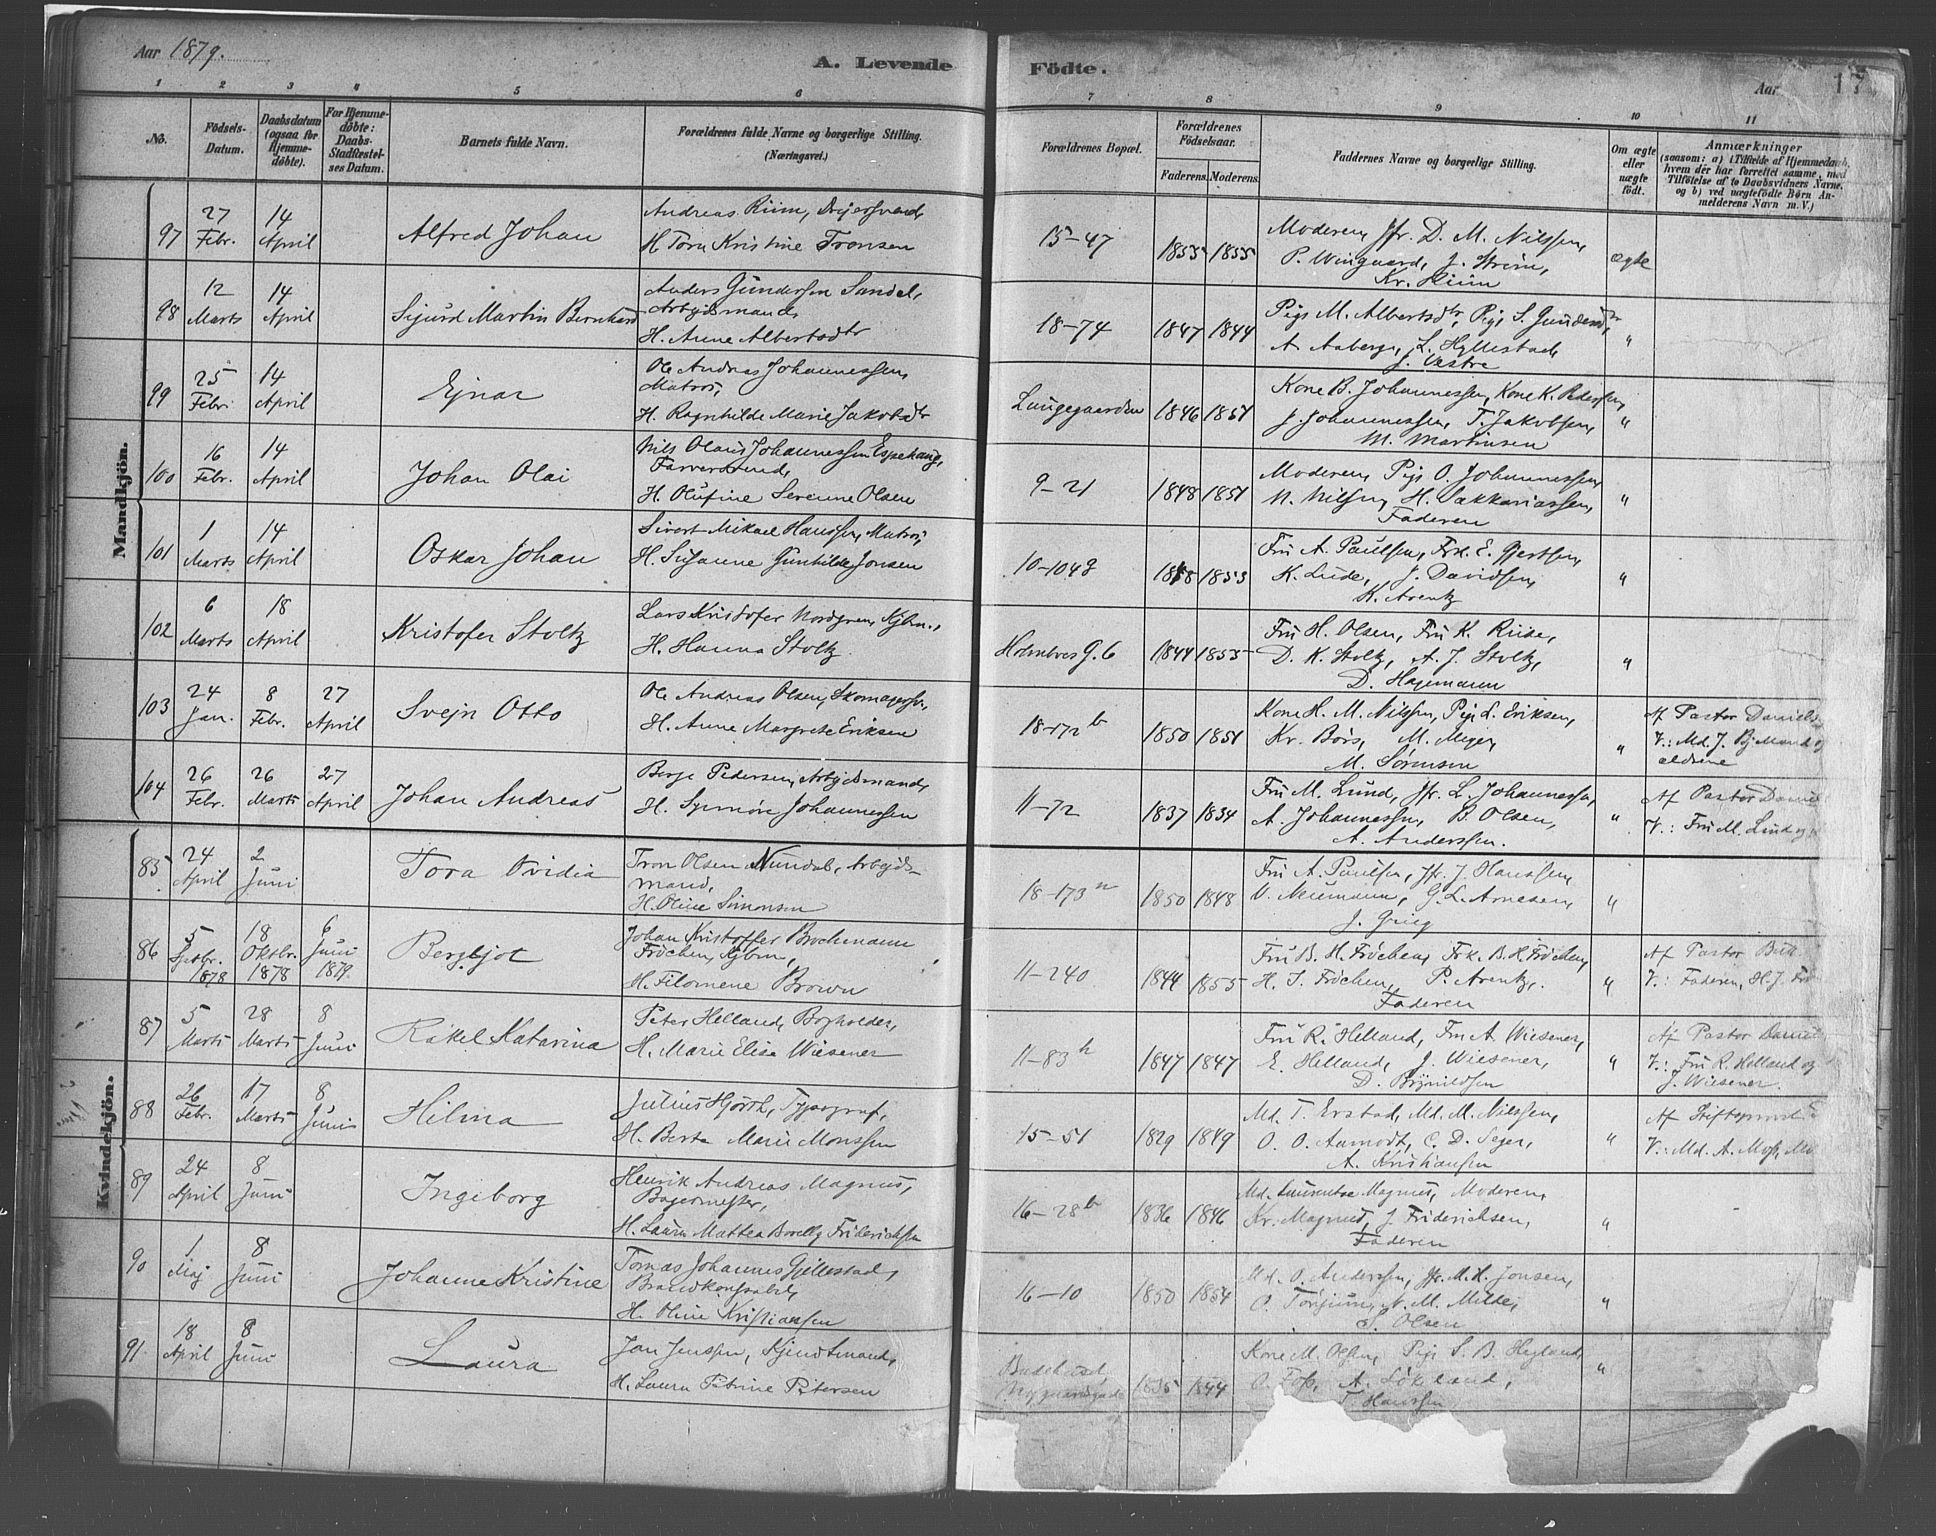 Aar 1879.
A. Levende Födte.
Aar 17
1 2 3 4 5 6 7 8 9 10 11
No.
Födsels-Datum.
Daabsdatum (ogsaa for Hjemmedöbte).
For Hjemmedöbte: Daabs-Stadfæstelses Datum.
Barnets fulde Navn.
Forældrenes fulde Navne og borgerlige Stilling.
(Næringsvei.)
Forældrenes Bopæl.
Forældrenes Födselsaar.
Faderens. Moderens.
Faddernes Navne og borgerlig Stilling.
Om ægte eller uægte födt.
Anmærkninger
(saasom: a) i Tilfælde af Hjemmedaab, hvem der har forrettet samme, med Tilföielse af to Daabsvidners Navne, og b) ved uægtefödte Börn Anmelderens Navn m. V.)
Mandkjön.
97 27 Febr. 14 April Alfred Johan
Andreas Riim,
H. Tora Kristine Tronsen
15-47 1855 1855
Moderen, Jfr. D. M. Nilssen,
P. Wingaard, J. Ström,
Kr. Riim
ægte
98 12 Marts 14 April Sigurd Martin Bernhard
Anders Gundersen Sandal,
Arbejdsmand,
H. Anne Albertsdtr
18-74 1847 1844
Pige M. Albertsdtr, Pige S. Gundersdtr
A. Aaberge, L. Hyllestad,
J. Vestre
"
99 25 Febr. 14 April Ejnar
Ole Andreas Johannessen,
Matros,
H. Ragnhilde Marie Jakobsdtr
Laugegaarden 1846 1851
Kone B. Johannessen, Kone K. Pedersen,
J. Johannessen, T. Jakobsen,
M. Martinsen
"
100 16 Febr. 14 April Johan Olai
Nils Olaus Johannessen Espehaug,
Farversvend,
H. Olufine Serenne Olsen
9-21 1848 1851
Moderen, Pige O. Johannessen,
N. Nilsen, H. Sakkariassen,
Faderen
"
101 1 Marts 14 April Oskar Johan
Sivert Mikael Hanssen, Matros,
H. Susanne Gunhilde Jonsen
10-104 1858 1853
Fru A. Paulsen, Frk. E. Gjertsen,
K. Lude, J. Davidsen,
K. Arentz
"
102 6 Marts 18 April Kristofer Stoltz
Lars Kristofer Nordgren, Kjbm.,
H. Hanna Stoltz.
Holmbres G. 6 1844 1855
Fru H. Olsen, Fru K. Riise,
D. K. Stoltz, A. J. Stoltz,
D. Hagemann
"
103 24 Jan. 8 Febr. 27 April Svejn Otto
Ole Andreas Olsen, Skomagersv.,
H. Anne Margrete Eriksen
18-172 b 1850 1851
Kone H. M. Nilssen, Pige L. Eriksen,
Kr. Börs, M. Meyer,
M. Sörensen
"
Af Pastor Daniels
V.: Md. J.
104 26 Febr. 26 Marts 27 April Johan Andreas
Berge Pedersen, Arbejdsmand,
H. Synnöve Johannessen
11-72 1837 1834
Fru M. Lund, Jfr. L. Johannessen,
A. Johannessen, B. Olsen,
A. Anderssen.
"
Af Pastor Daniel
V.: Fru M. Lind og
Kvindekjön.
85 24 April 2 Juni Tora Ovidia
Tron Olsen Nundal, Arbejds-
mand,
H. Oline Simonsen
18-173 a 1850 1848
Fru A. Paulsen, Jfr. J. Hanssen,
O. Neumann, G. L. Arnesen,
J. Grieg
"
86 5 Septbr. 1878 18 Oktbr. 1878 6 Juni 1879. Bergljot
Johan Kristoffer Brochmann
Fröchen, Kjbm.,
H. Filomene Brown
11-240 1844 1855
Fru B. H. Fröchen, Frk. B. H. Fröchen,
H. J. Fröchen, P. Arentz,
Faderen
"
Af Pastor Bull
V.: Faderen, H. J. Frö
87 5 Marts 28 Marts 8 Juni Rakel Katarina
Peter Helland, Bogholder,
H. Marie Elisa Wiesener
11-83 h 1847 1847
Fru R. Helland, Fru A. Wiesener,
E. Helland, J. Wiesener,
D. Brynildsen
"
Af Pastor Daniel
V.: Fru R. Helland og
J. Wiesener.
88 26 Febr. 17 Marts 8 Juni Hilma
Julius Hjorth, Typograf,
H. Berta Marie Monssen
15-51 1829 1849
Md. T. Erstad, Md. M. Nilssen,
O. O. Aamodt, C. D. Seger,
A. Kristiansen
"
Af Stiftsprovst
V.: Md. A. Moss, Mo
89 24 April 8 Juni Ingeborg
Henrik Andreas Magnus,
Bagermester,
H. Laura Mattea Friderichsen
16-28 b 1836 1846
Md. Laurentse Magnus, Moderen,
Kr. Magnus, J. Friderichsen,
Faderen
"
90 1 Maj 8 Juni Johanne Kristine
Tomas Johannes Gjellestad,
Brandkonstabel,
H. Oline Kristianssen
16-10 1850 1854
Md. O. Anderssen, Jfr. M. H. Jonsen,
O. Torjusen, N. M. Milde,
S. Olsen
"
91 18 April 8 Juni Laura
Jan Jenssen, Kjendtmand,
H. Laura Petrine Petersen
Nygaardsgade 1835 1844
Kone M. Olsen, Pige S. B. Heyland,
O. Foss, A. Lökeland,
T. Hanssen
"